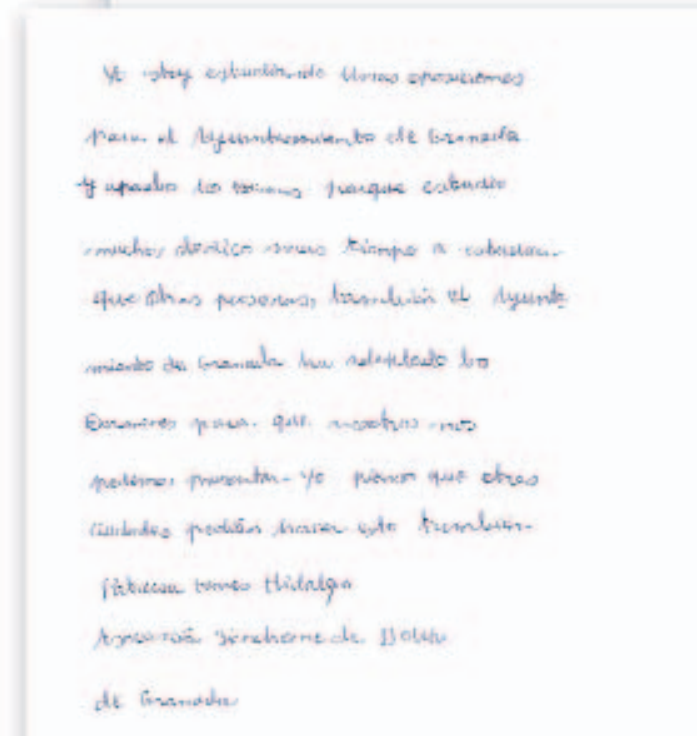 Yo estoy estudiando Unas oposiciones
para el Ayuntamiento de Granada
y apruebo los temas porque estudio
mucho, dedico mas tiempo a estudiar
que otras personas, también el Ayunta
miento de Granada ha adaptado los
Examenes para que nosotros nos
podamos presentar. yo pienso que otras
ciudades podían hacer esto tambien.
Hidalgo
Síndrome de Down
de Granada